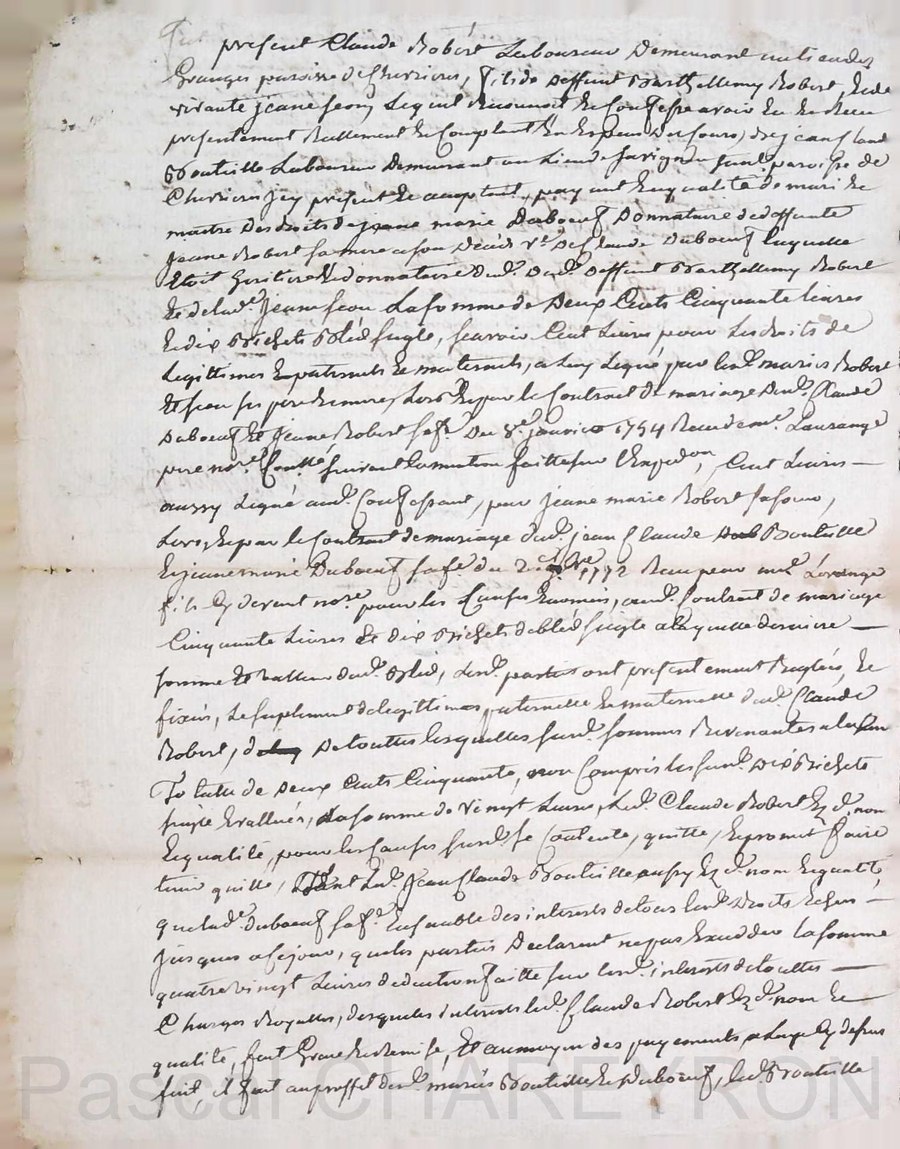 Fut présent Claude Robert Laboureur Demeurant au lieu des
Granges paroisse de Chevrieres, fils de deffunt Barthellemy Robert, et de
vivante jeane seon, Lequel Reconnoit et Confesse avoir Eu et Receu
présentement Réellement et Comptant En Especes de Cours, de jean Claude
Bouteille Laboureur Demeurant au Lieu de paroisse de
Chevrieres jcy présent et acceptant, payant En qualité de mari et
maitre Des droits de jeane marie Duboeuf Donnataire de deffunte
jeane Robert sa mere a son Décés Ve De Claude Duboeuf Laquelle
Etoit heritiere et donnataire dud. deffunt Barthellemy Robert
Et de lad. jeane seon La somme de Deux Cents Cinquante livres
et dix Bichets Bled seigle, scavoir Cent Livres pour Les droits de
Legittimes paternels et maternels, a Luy Legué par lesd. mariés Robert
Et seon ses pere et mere, Lors et par le Contrat de mariage dud. Claude
Duboeuf et jeane Robert sa fe. Du 8e janvier 1754 Receu de me. Laurange
pere nore. Controllé suivant la mention faitte sur l'Expedon, Cent Livres
aussy Legué aud. Confessant, par jeane marie Robert sa soeur,
Lors et par le Contrat de mariage dud. jean Claude Bouteille
Et jeane marie Duboeuf sa fe. du 2 1772 Receu par me. Lorange
fils Cy devant nore. pour les Causes Enoncées, aud. Contrat de mariage
Cinquante Livres et dix Bichets de bled seigle a laquelle derniere
somme et valleur dud. Bled, Lesd. parties ont présentement Reglés, et
fixés, Le suplement de legittimes paternelle et maternelle dud. Claude
Robert, De touttes lesquelles susd. sommes Revenantes a la somme
Totalle de Deux Cents Cinquante, non Compris les susd. Dix Bichets
seigle Evallués, a La somme de vingt Livres, Led. Claude Robert Esd. nom
Et qualité, pour les Causes susd. se Contente, quitte, Et promet faire
tenir quitte, tant Led. jean Claude Bouteille aussy Esd. nom Et qualité,
que lad. duboeuf sa fe. Ensemble des interets de tous lesd. Droits Echus
jusques a ce jour, que les parties Declarent ne pas Exceder La somme
quatre vingt Livres déduction faitte sur lesd. interets de touttes
Charges Royalles, desquels interets led. Claude Robert Esd. nom Et
qualité, fait Grace Et Remise, Et au moyen des payements a Luy Cy dessus
fait, il fait au proffit desd. mariés Bouteille Et Duboeuf, led. Bouteille
Pascal CHAREYRON